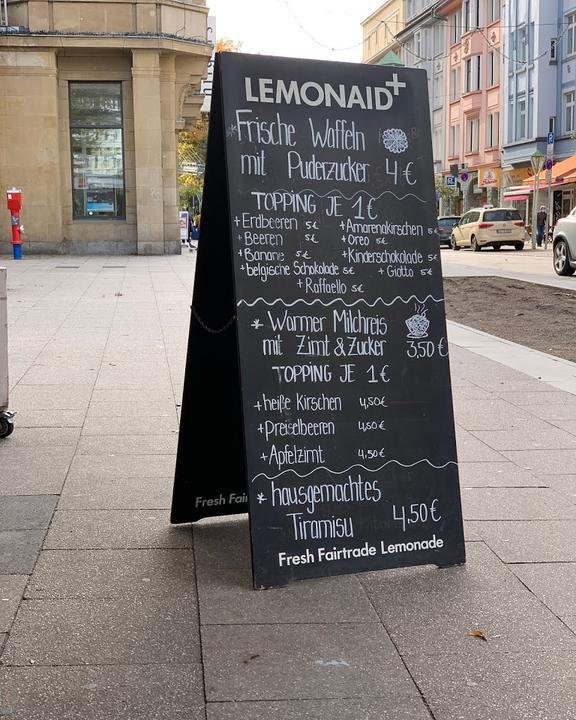 LEMONAID+
*Frische Waffeln
mit Puderzucker 4€
TOPPING JE 1€
+Erdbeeren 5€ +Amarenakirschen 5€
+Beeren 5€ +Oreo 5€
+Banane 5€ +Kinderschokolade 5€
+belgische Schokolade 5€ +Giotto 5€
+Raffaello 5€
* Warmer Milchreis
mit Zimt & Zucker 3,50€
TOPPING JE 1€
+heiße Kirschen 4,50€
+Preiselbeeren 4,50€
+Apfelzimt 4,50€
* hausgemachtes
Tiramisu 4,50€
Fresh Fairtrade Lemonade
Fresh Fai